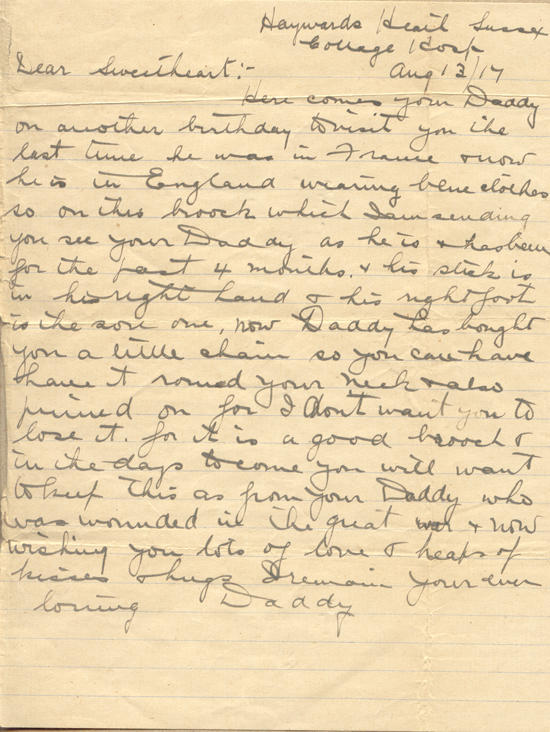 Haywards Heath Sussex
Cottage Hosp
Dear Sweetheart:- Aug 13/17
Here comes your Daddy
on another birthday to visit you the
last time he was in France & now
he is in England wearing blue clothes
so on this broock which I am sending
you see your Daddy as he is & has been
for the past 4 months. & his stick is
in his right hand & his right foot
is the sore one, now Daddy has bought
you a little chain so you can have
have it round your neck & also
pinned on for I dont want you to
lose it. for it is a good brooch &
in the days to come you will want
to keep this as from your Daddy who
was wounded in the great war & now
wishing you lots of love & heaps of
kisses & hugs I remain your ever
loving Daddy